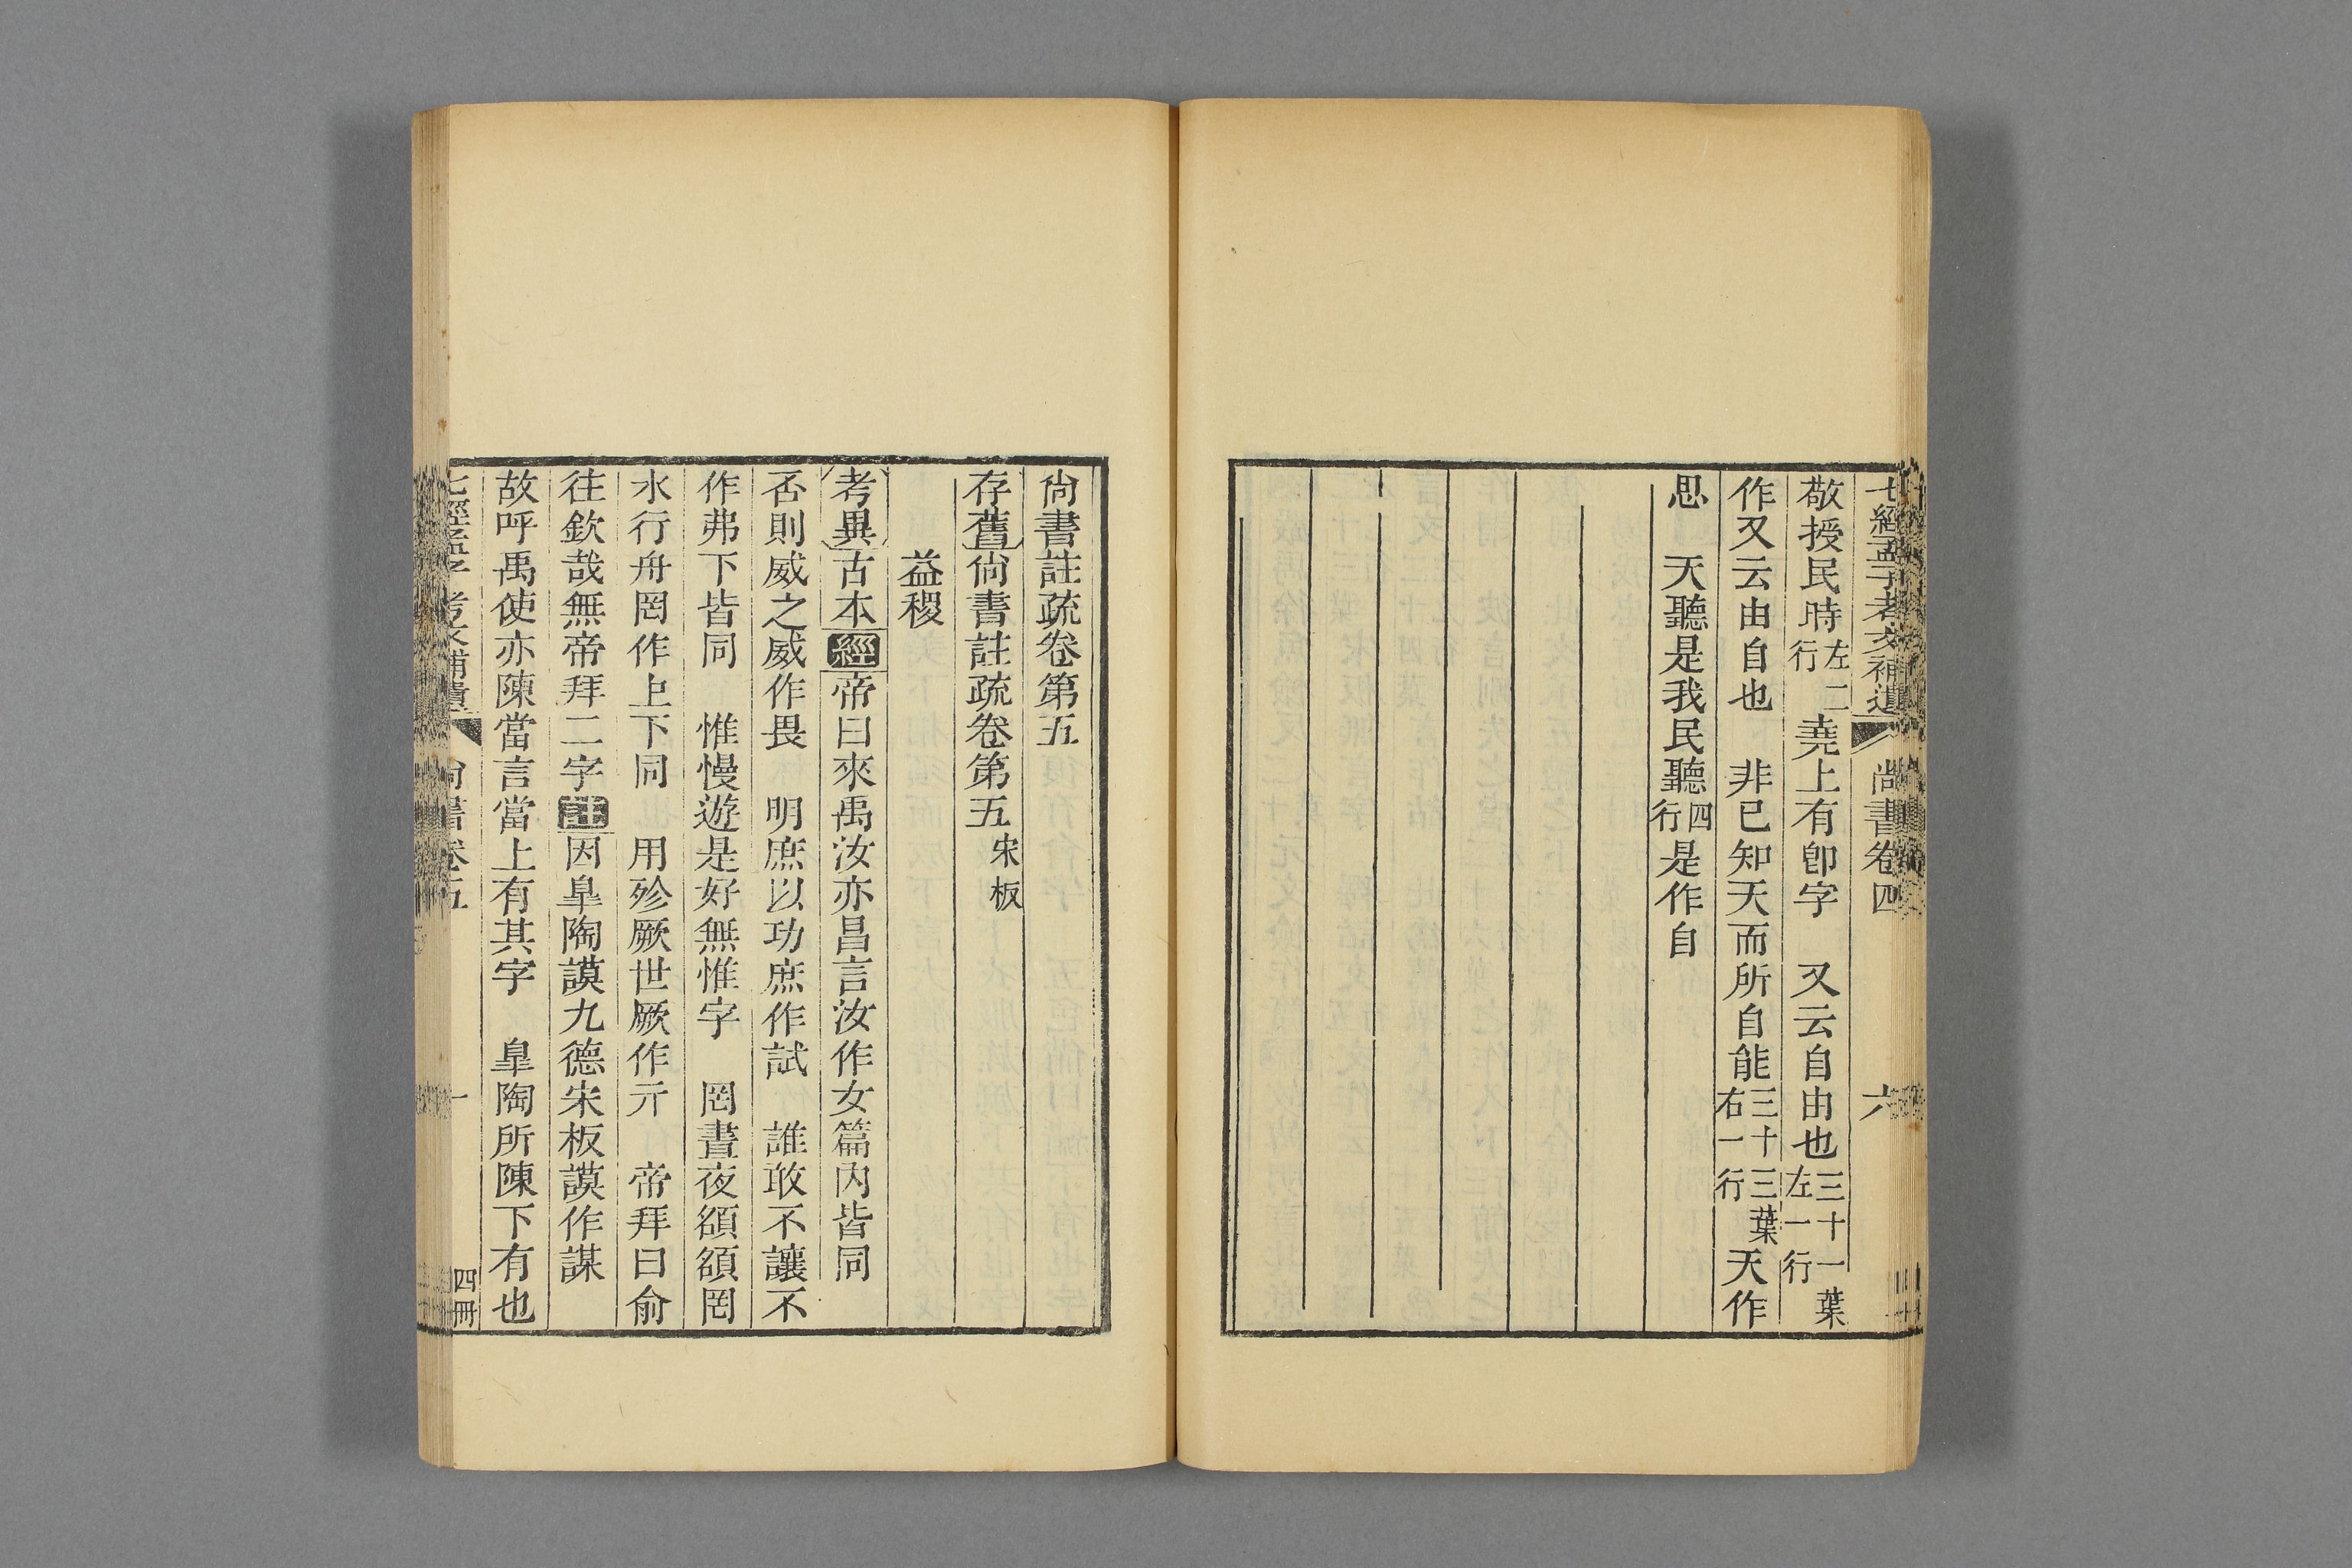 七經孟子考文補遺 尚書卷四 六
敬授民時左二行 堯上有卽字 又云自由也三十一葉左一行
作又云由自也 非已知天而所自能三十三葉右一行天作
思 天聽是我民聽四行是作自
尙書註疏卷第五
存舊尙書註疏卷第五宋板
益稷
考異古本經帝曰來禹汝亦昌言汝作女篇內皆同
否則威之威作畏 明庶以功庶作試 誰敢不讓不
作弗下皆同 惟慢遊是好無惟字 罔晝夜頟頟罔
水行舟罔作上下同 用殄厥世厥作亓 帝拜曰俞
往欽哉無帝拜二字註因臯陶謨九德宋板謨作謀
故呼禹使亦陳當言當上有其字 臯陶所陳下有也
七經孟子考文補遺 尚書卷五 一 四冊